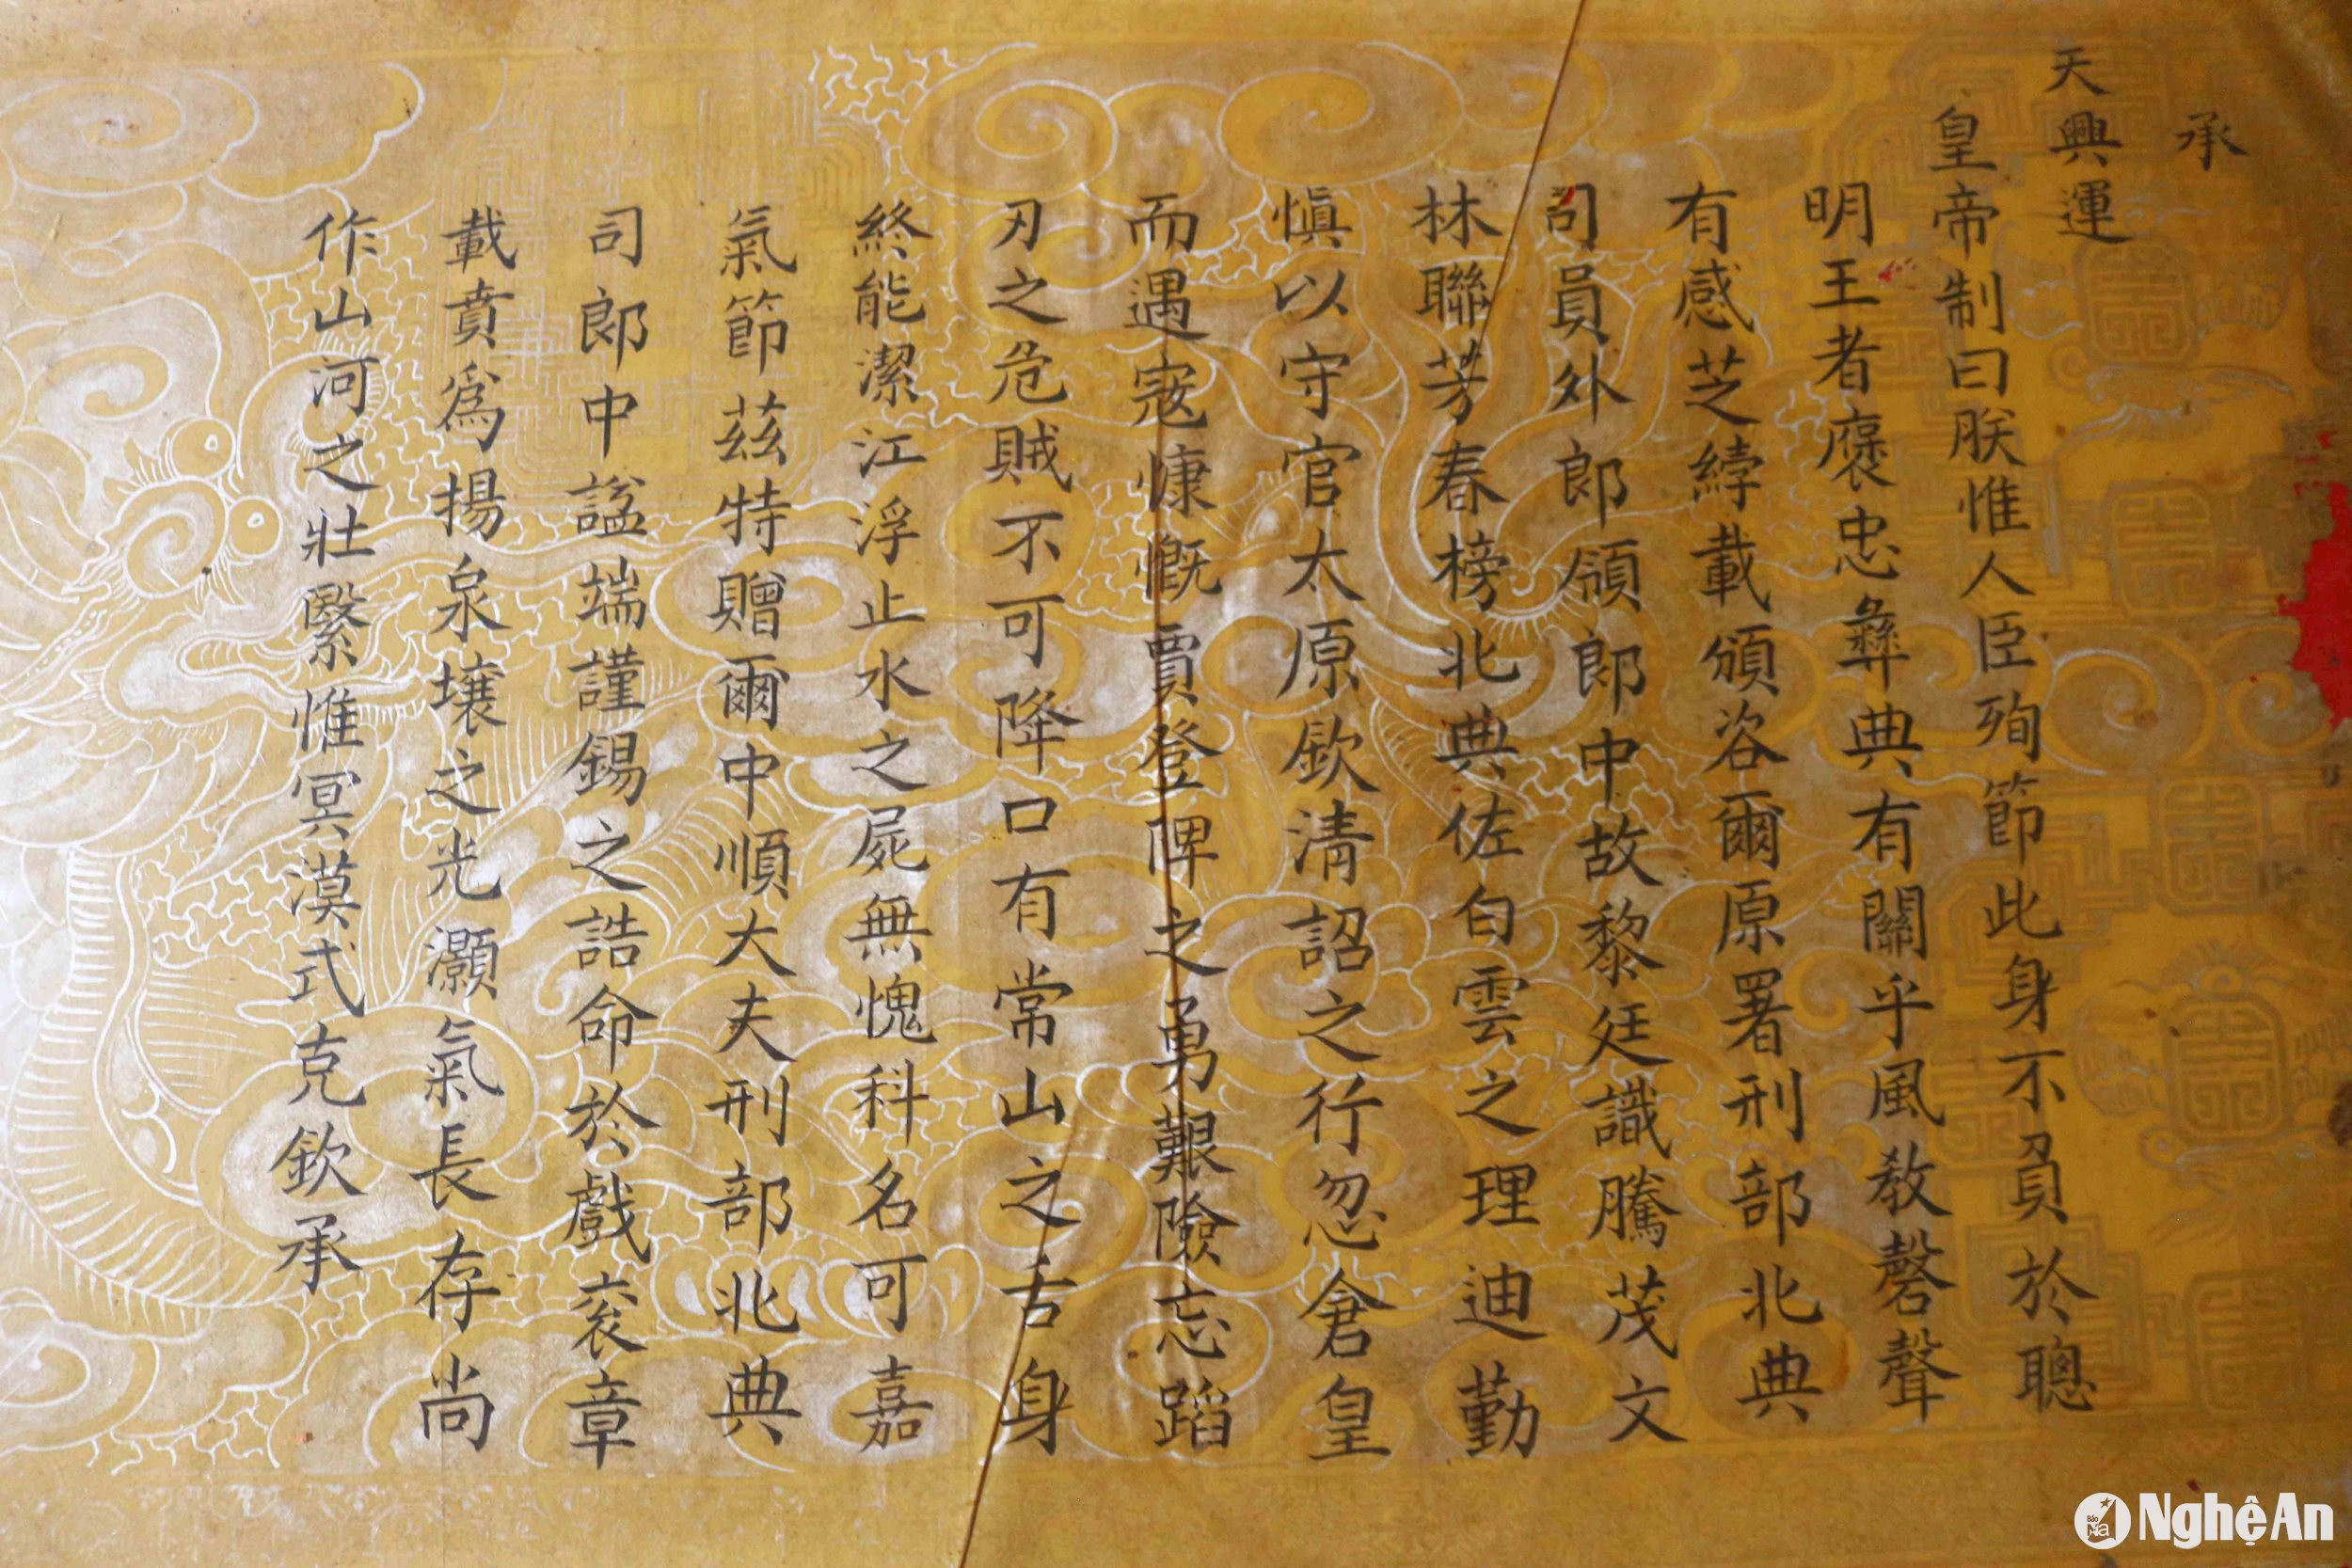 承
天興運
皇帝制曰朕惟人臣殉節此身不負於聰
明王者褒忠彝典有關乎風教磬聲
有感芝綍載頒咨爾原署刑部北典
司員外郎領郎中故黎廷識騰茂文
林聯芳春榜北典佐白雲之理迪勤
慎以守官太原欽清詔之行忽倉皇
而遇寇慷慨賈登陴之勇艱險忘蹈
刃之危賊不可降口有常山之舌身
終能潔江浮止水之屍無愧科名可嘉
氣節茲特贈爾中順大夫刑部北典
司郎中諡端謹錫之誥命於戲袞章
載賁爲揚泉壤之光灝氣長存尚
作山河之壯繄惟冥漠式克欽承
Báo Na NghệAn